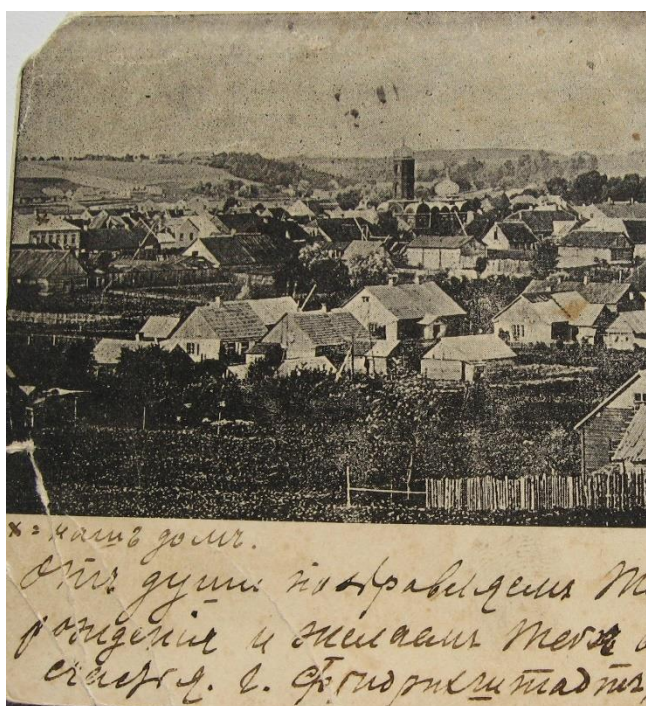 х = нашъ домъ.
Отъ души поздравляемъ
рожденія и желаемъ тебѣ
счастья. г. Фридрихштадтъ,